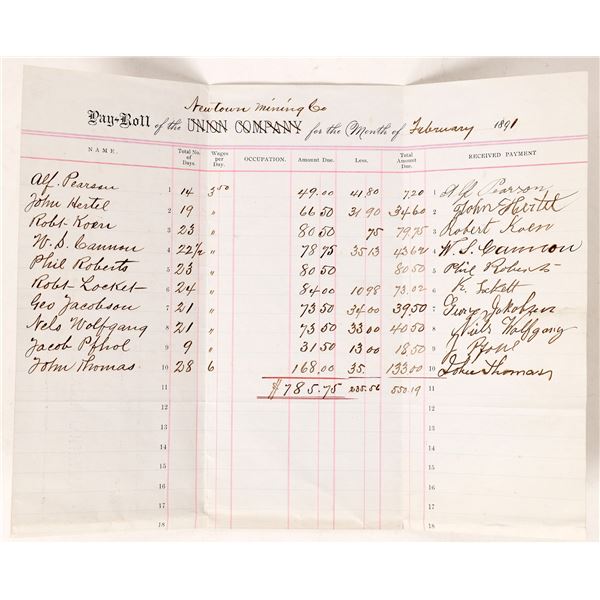 Newtown Mining Co
Pay-Roll of the UNION COMPANY for the Month of February 1891
NAME. Total No. of Days. Wages per Day. OCCUPATION. Amount Due. Less. Total Amount Due. RECEIVED PAYMENT
Alf. Pearson 1 14 3.50 49.00 41 80 7.20 1 Alf Pearson
John Hertel 2 19 " 66 50 31 90 34 60 2 John Hertel
Robt Koen 3 23 " 80 50 75 79,75 3 Robert Koen
W. S. Cannon 4 22 1/2 " 78 75 35 13 43 62 4 W. S. Cannon
Phil Roberts 5 23 " 80 50 80 50 5 Phil Roberts
Robt Locket 6 24 " 84 00 10 98 73.02 6 R. Lockett
Geo Jacobson 7 21 " 73.50 34 00 39,50 7 Georg Jakobsen
Nels Wolfgang 8 21 " 73.50 33 00 40.50 8 Niels Wolfgang
Jacob Pfhol 9 9 " 31.50 13 00 18.50 9 J Pfohl
John Thomas 10 28 6 168.00 35. 133 00 10 John Thomas
11 $785.75 235.56 550.19 11
12 12
13 13
14 14
15 15
16 16
17 17
18 18